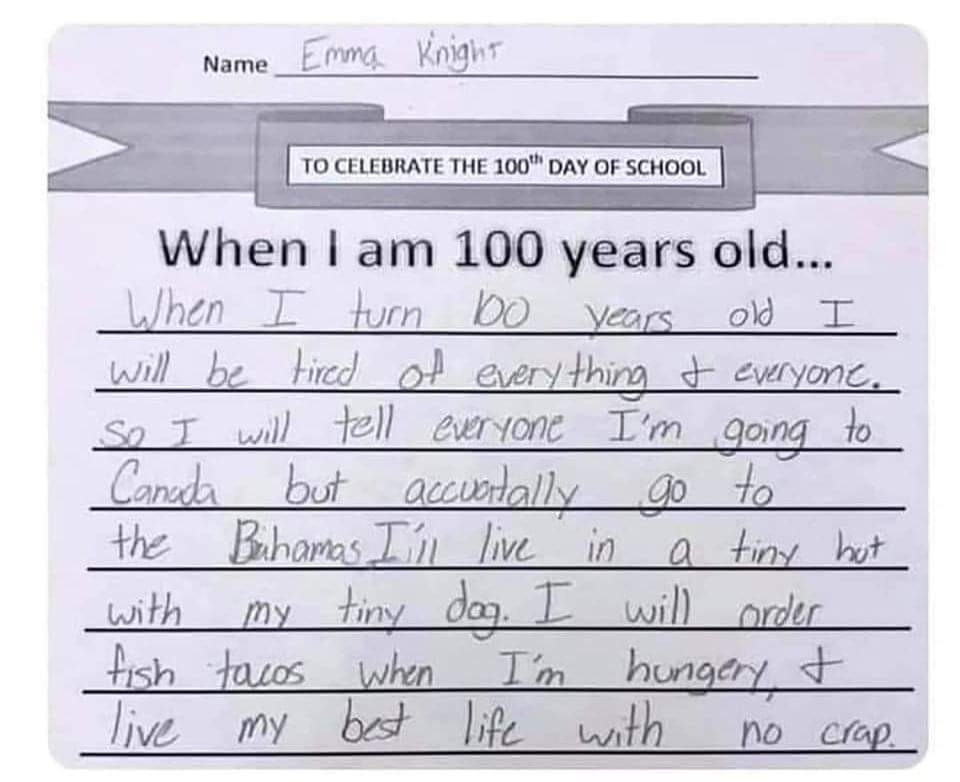 Name Emma Knight
TO CELEBRATE THE 100th DAY OF SCHOOL
When I am 100 years old...
When I turn 100 years old I
will be tired of everything & everyone.
So I will tell everyone I'm going to
Canada but accuortally go to
the Bahamas I'ill live in a tiny hut
with my tiny dog. I will order
fish tacos when I'm hungery, &
live my best life with no crap.